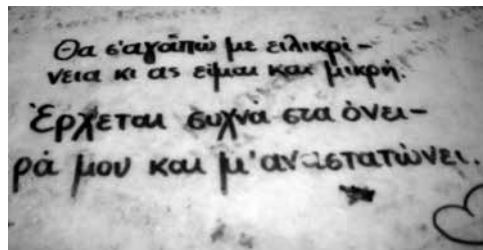 Θα σ'αγαπώ με ειλικρί-
νεια κι ας είμαι και μικρή.
Έρχεται συχνά στα όνει-
ρά μου και μ'αναστατώνει.